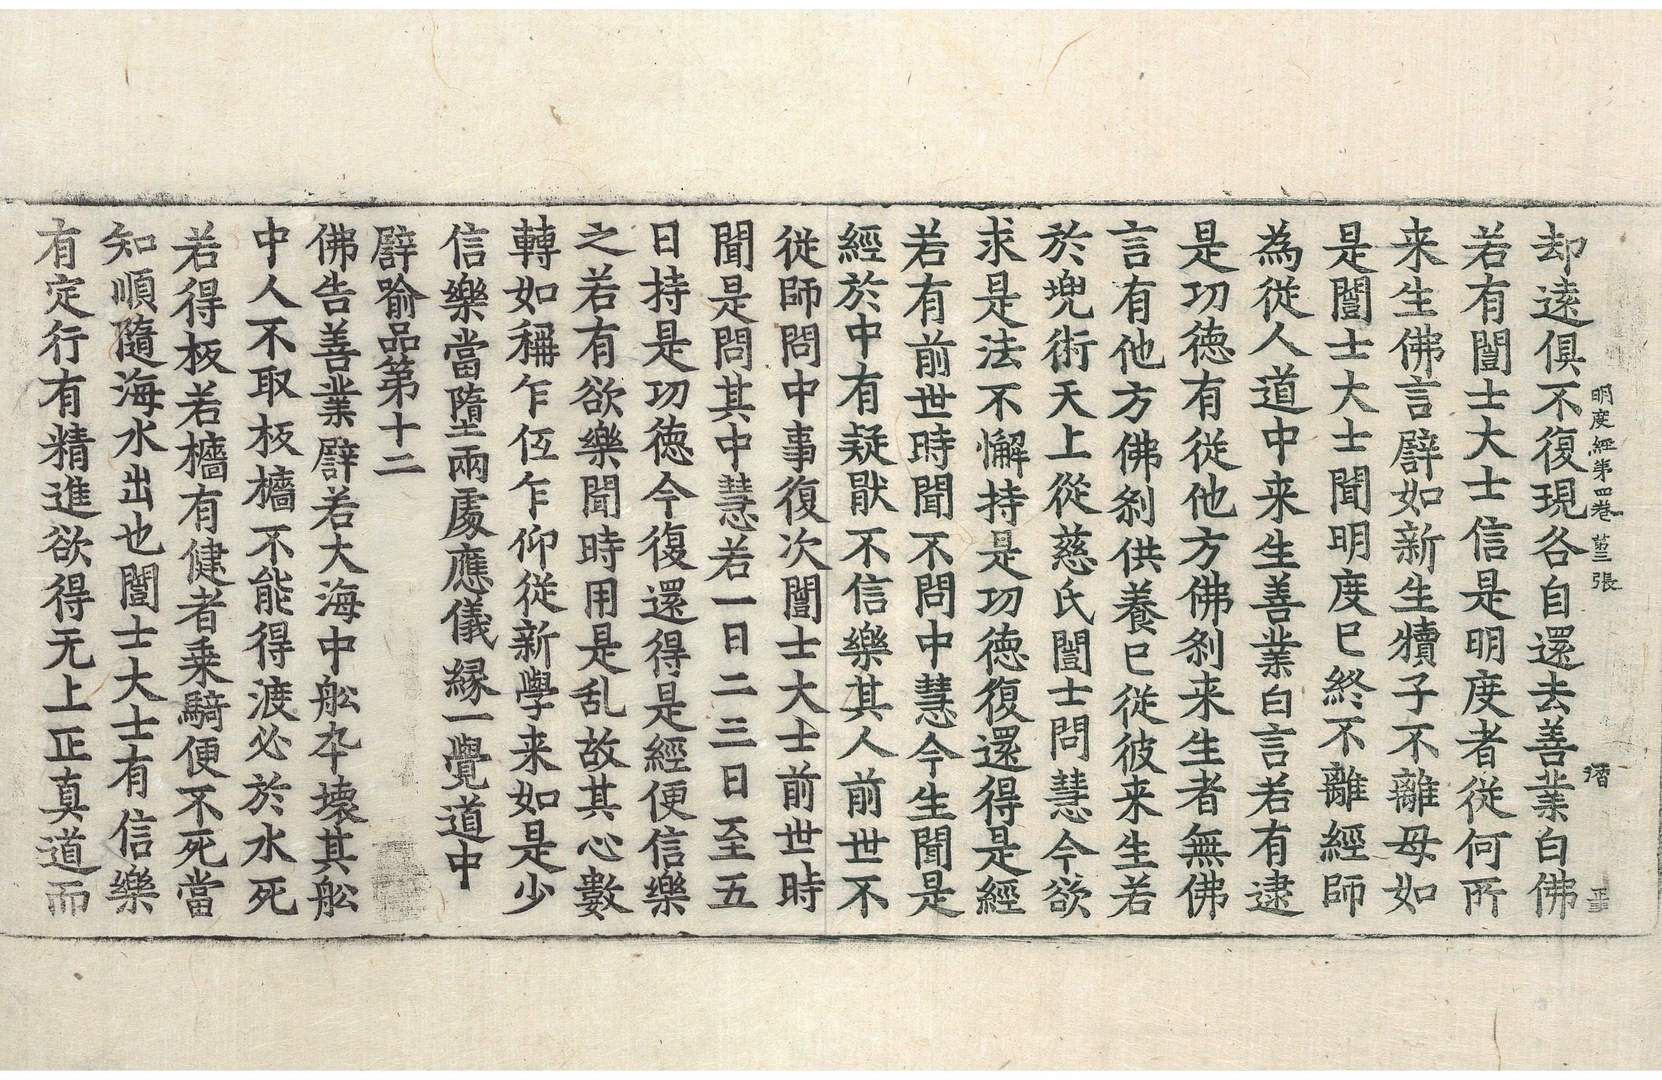 明度經第四卷 第三張 潛 正
却遠俱不復現各自還去善業白佛
若有闓士大士信是明度者從何所
来生佛言譬如新生犢子不離母如
是闓士大士聞明度已終不離經師
為從人道中来生善業白言若有逮
是功德有從他方佛剎来生者無佛
言有他方佛剎供養已從彼来生若
於兜術天上從慈氏闓士問慧今欲
求是法不懈持是功德復還得是經
若有前世時聞不問中慧今生聞是
經於中有疑猒不信樂其人前世不
從師問中事復次闓士大士前世時
聞是問其中慧若一日二三日至五
日持是功德今復還得是經便信樂
之若有欲樂聞時用是乱故其心數
轉如稱乍仾乍仰從新學来如是少
信樂當墮兩處應儀縁一覺道中
譬喻品第十二
佛告善業譬若大海中舩卒壞其舩
中人不取板檣不能得渡必於水死
若得板若檣有健者乗騎便不死當
知順隨海水出也闓士大士有信樂
有定行有精進欲得无上正真道而